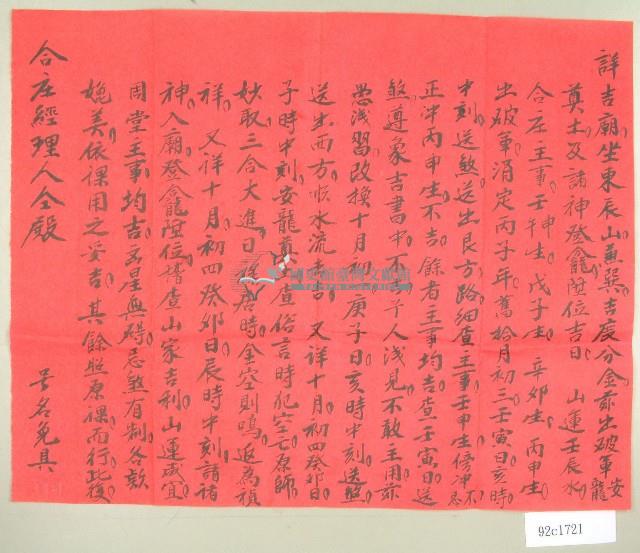 詳吉廟坐東辰山兼巽吉度分金茲出破軍安龍
奠土及諸神登龕陞位吉日 山運壬辰水
合庄主事壬申生戊子生辛卯生丙申生
出破軍涓定丙子年舊拾月初三壬寅日亥時
中刻送煞送出艮方路細查主事壬申生傍冲不忌
正冲丙申生不吉餘者主事均吉查壬寅日送
煞遵象吉書中不 予人浅見不敢主用茲
愚浅習改換十月初 庚子日亥時中刻送煞
送出西方順水流吉 又詳十月初四癸卯日
子時中刻安龍奠 查俗言時犯空亡原師
妙取三合大進日 居時金空則鳴返為禎
祥 又詳十月初四癸卯日辰時中刻請諸
神入廟登龕陞位增查山家吉利山運咸宜
周堂主事均吉 星無碍忌煞有制各款
媲美依課用之妥吉其餘照原課而行此復
合庄經理人仝殿 号名免具
92c1721